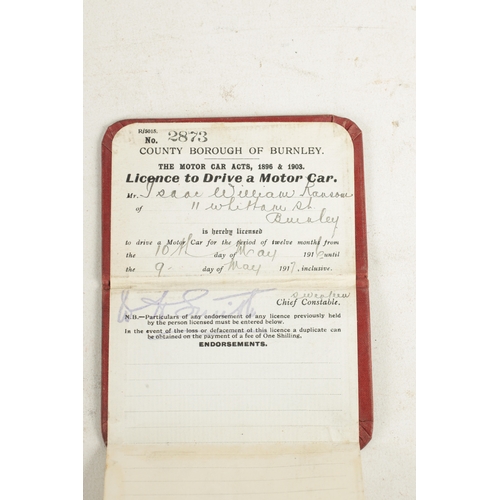 R/3015.
No. 2873
COUNTY BOROUGH OF BURNLEY.
THE MOTOR CAR ACTS, 1896 & 1903.
Licence to Drive a Motor Car.
Mr. Isaac William Ransom
of 11 Whittam St
Burnley
is hereby licensed
to drive a Motor Car for the period of twelve months from
the 10th day of May 1916 until
the 9 day of May 1917, inclusive.
Chief Constable.
N.B.—Particulars of any endorsement of any licence previously held
by the person licensed must be entered below.
In the event of the loss or defacement of this licence a duplicate can
be obtained on the payment of a fee of One Shilling.
ENDORSEMENTS.